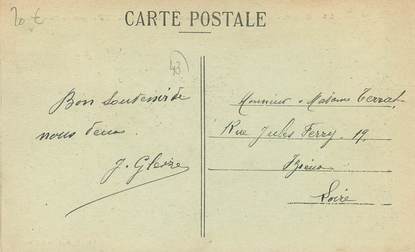 20 €
CARTE POSTALE
43
Bon Souvenir de
nous deux
J. Gleize
Monsieur & Madame Terrat
Rue Jules Ferry. 19.
Loire